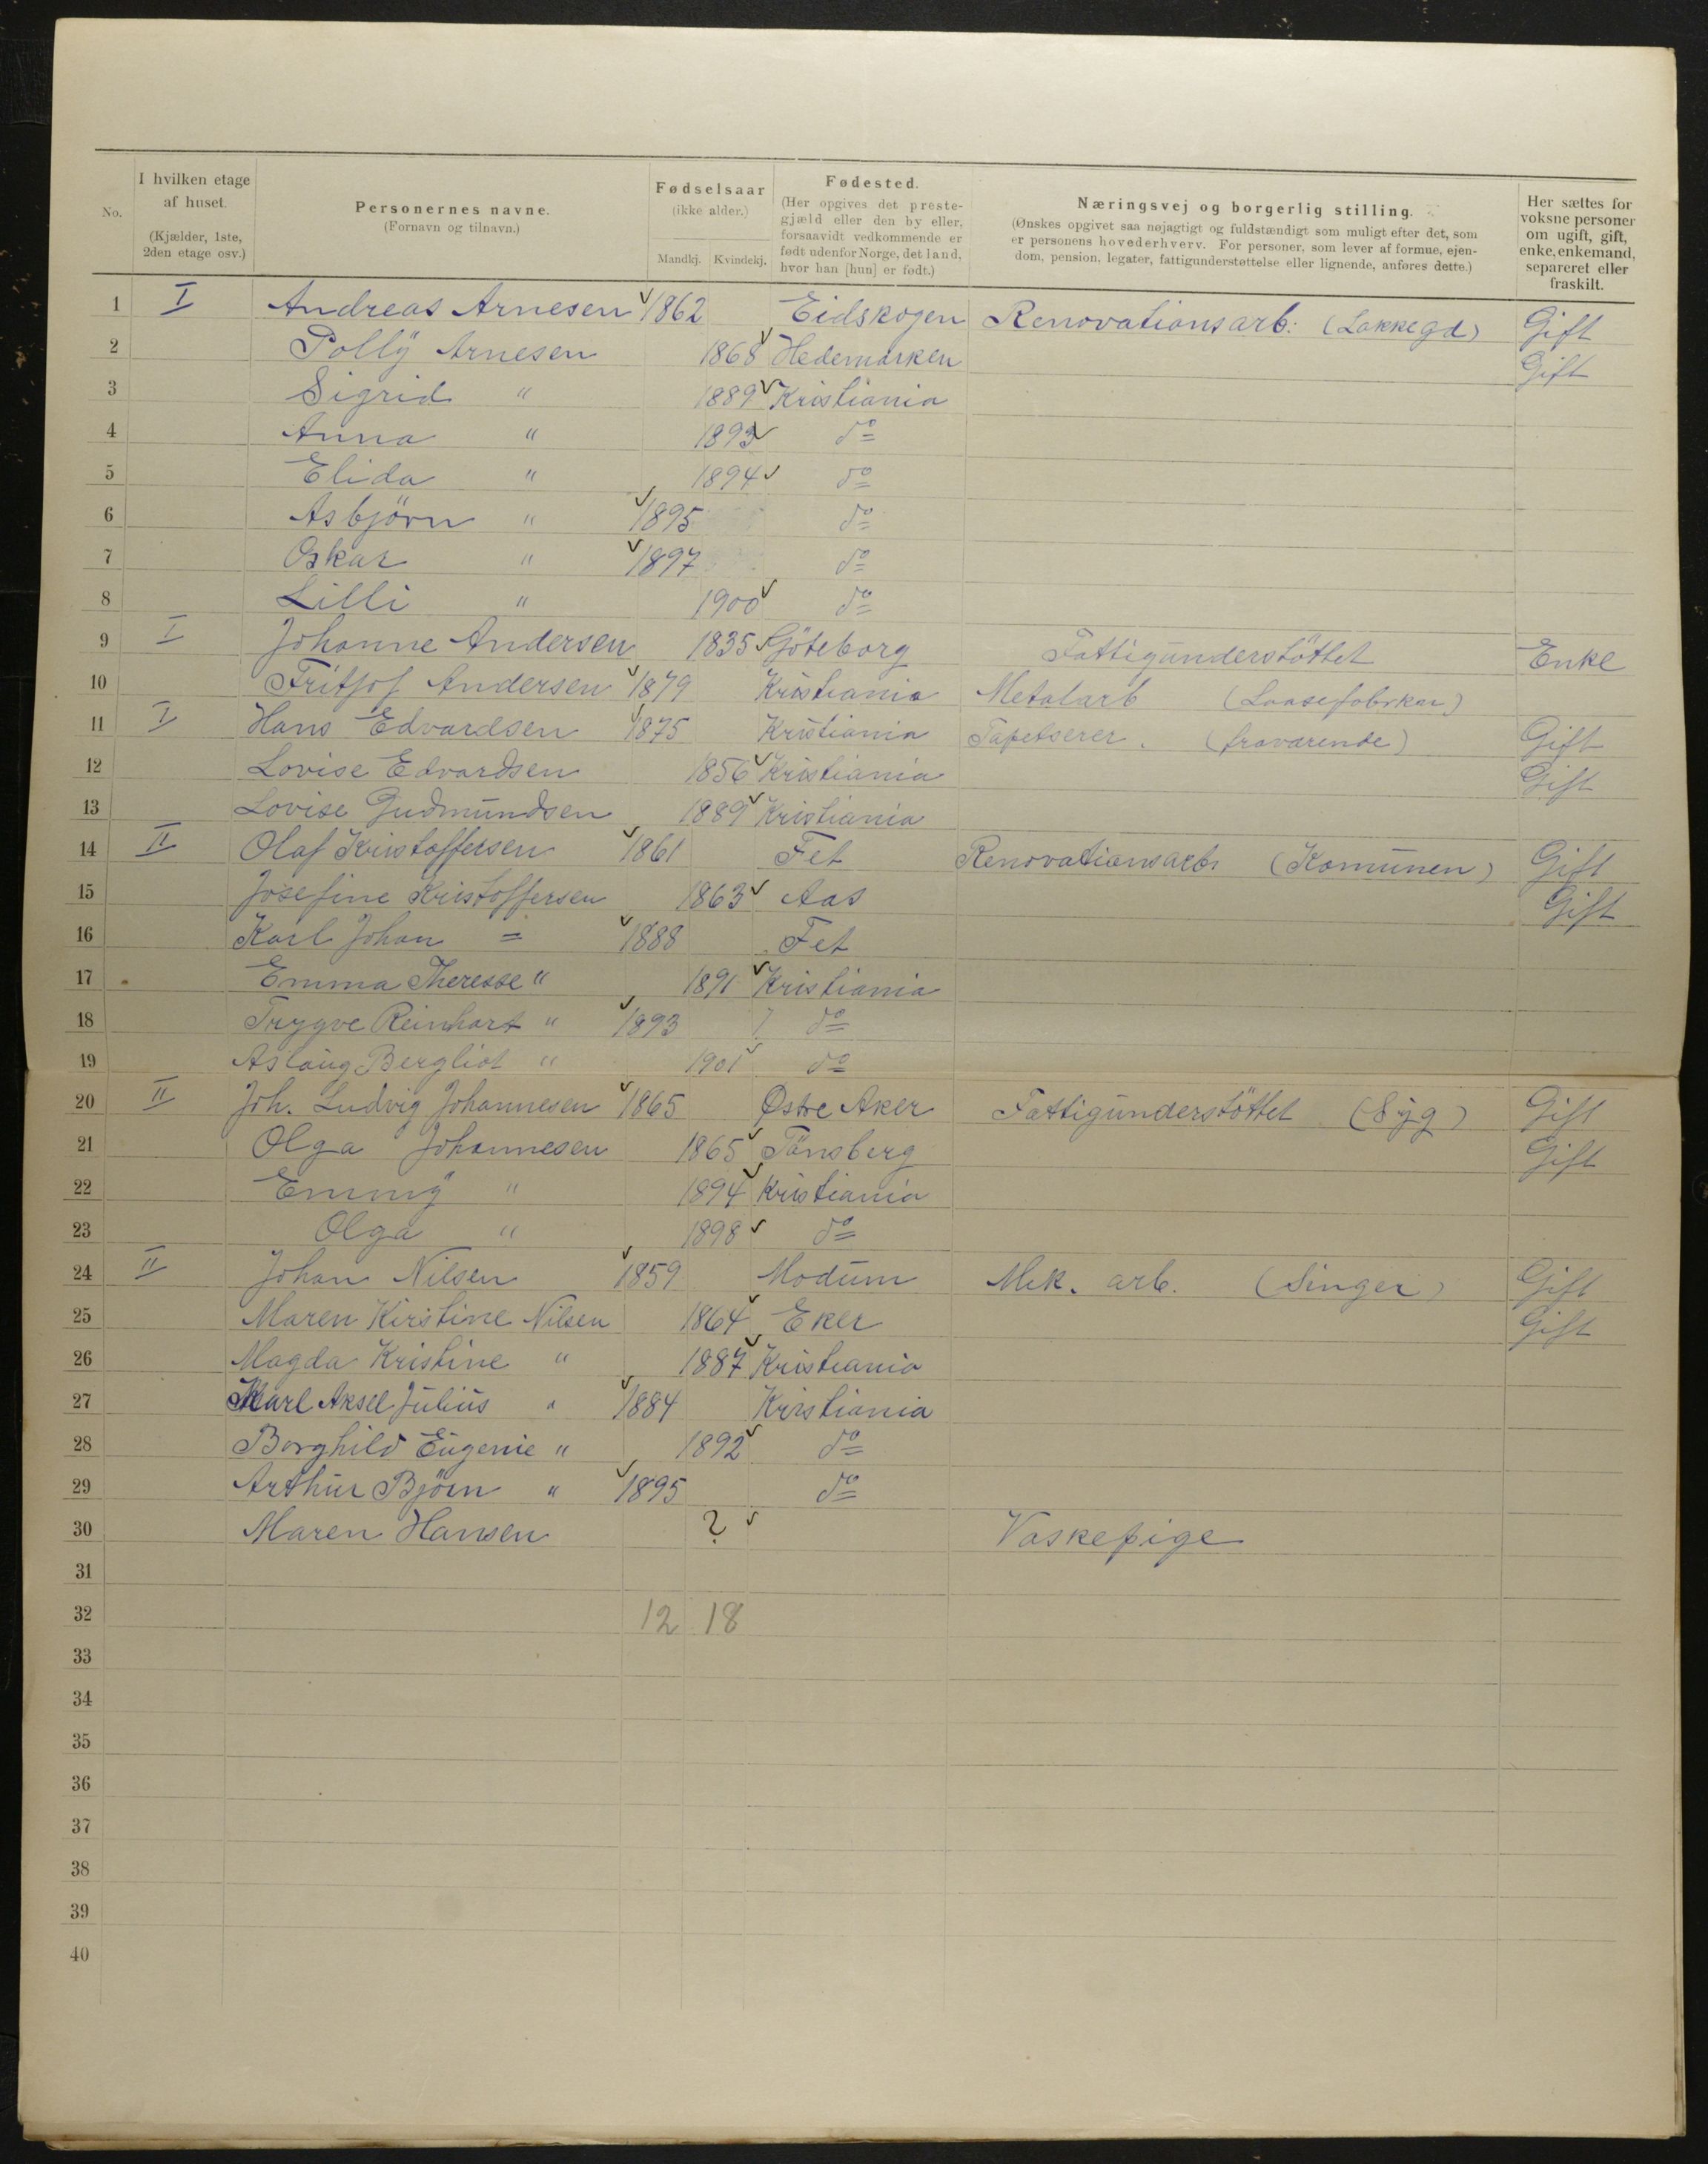 No. I hvilken etage af huset. (Kjælder, 1ste, 2den etage osv.) Personernes navne. (Fornavn og tilnavn.) Fødselsaar (ikke alder.) Mandkj. Kvindekj. Fødested. (Her opgives det prestegjæld eller den by eller, forsaavidt vedkommende er født udenfor Norge, det land, hvor han [hun] er født.) Næringsvej og borgerlig stilling. (Ønskes opgivet saa nøjagtigt og fuldstændigt som muligt efter det, som er personens hovederhverv. For personer, som lever af formue, ejendom, pension, legater, fattigunderstøttelse eller lignende, anføres dette.) Her sættes for voksne personer om ugift, gift, enke, enkemand, separeret eller fraskilt.
1 I Andreas Arnesen 1862 Eidskogen Renovationsarb: (Lakkegd) Gift
2 Polly Arnesen 1868 Hedemarken Gift
3 Sigrid " 1889 Kristiania
4 Anna " 1893 do
5 Elida " 1894 do
6 Asbjörn " 1895 do
7 Oskar " 1897 do
8 Lilli " 1900 do
9 I Johanne Andersen 1835 Göteborg Fattigunderstöttet Enke
10 Fritjof Andersen 1879 Kristiania Metalarb (Laasefabrkan)
11 I Hans Edvardsen 1875 Kristiania Tapetserer. (fraværende) Gift
12 Lovise Edvardsen 1856 Kristiania Gift
13 Lovise Gudmundsen 1889 Kristiania
14 II Olaf Kristoffersen 1861 Fet Renovationsarb: (Komunen) Gift
15 Josefine Kristoffersen 1863 Aas Gift
16 Karl Johan = 1888 Fet
17 Emma Theresse " 1891 Kristiania
18 Trygve Reinhart " 1893 do
19 Aslaug Bergliot " 1901 do
20 II Joh. Ludvig Johannesen 1865 Østre Aker Fattigunderstöttet (Syg) Gift
21 Olga Johannesen 1865 Tönsberg Gift
22 Emmy " 1894 Kristiania
23 Olga " 1898 do
24 II Johan Nilsen 1859 Modum Mek. arb. (Singer) Gift
25 Maren Kirstine Nilsen 1864 Eker Gift
26 Magda Kristine " 1887 Kristiania
27 Karl Aksel Julius " 1884 Kristiania
28 Borghild Eugenie " 1892 do
29 Arthur Björn " 1895 do
30 Maren Hansen ? Vaskepige
31
32 12 18
33
34
35
36
37
38
39
40